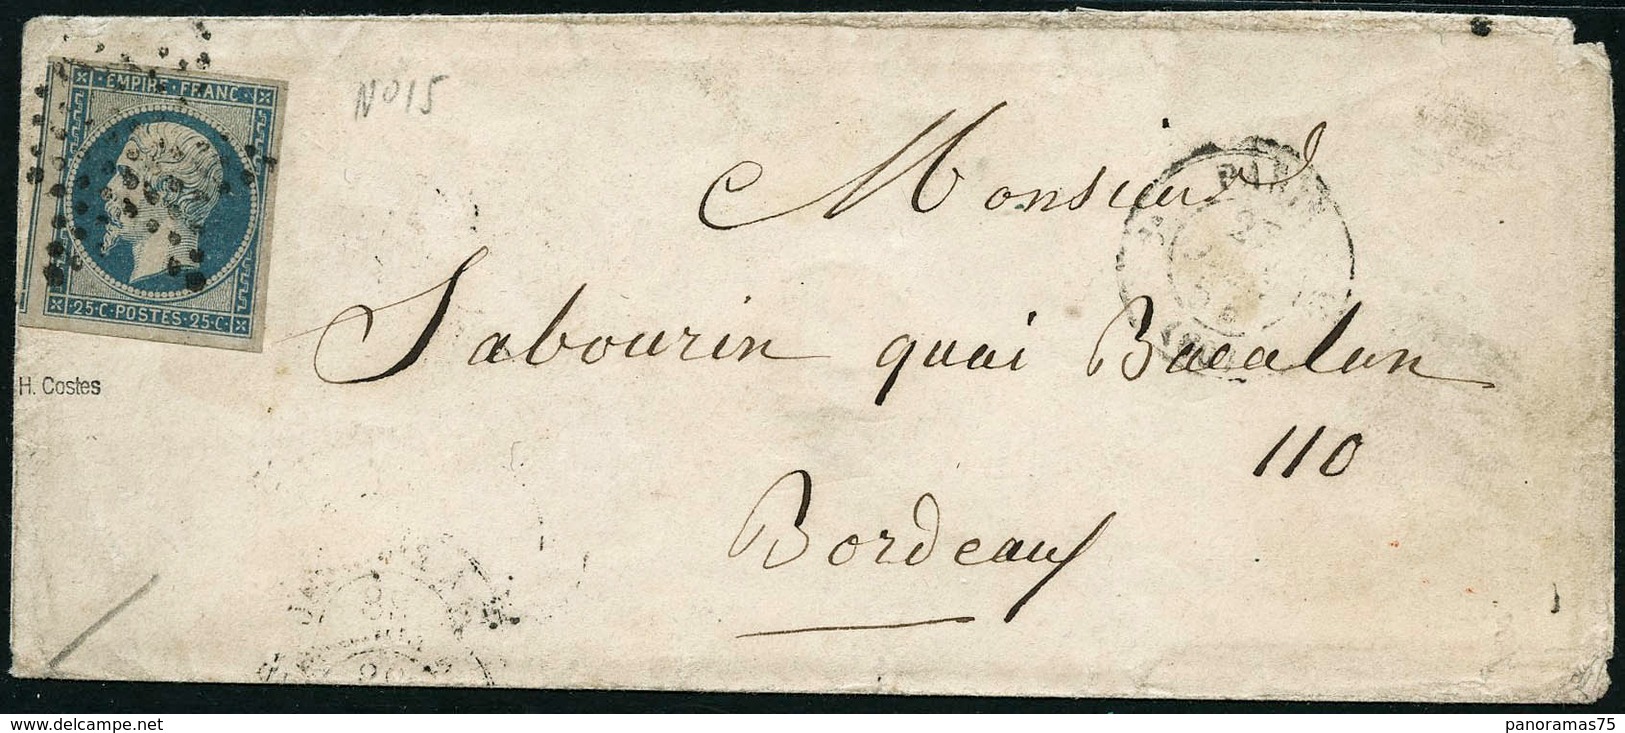 EMPIRE · FRANC ·
25·C·POSTES·25·C·
N° 15
PARIS
Monsieur
Sabourin quai Bacalan
110
Bordeaux
H. Costes
www.delcampe.net
panoramas75